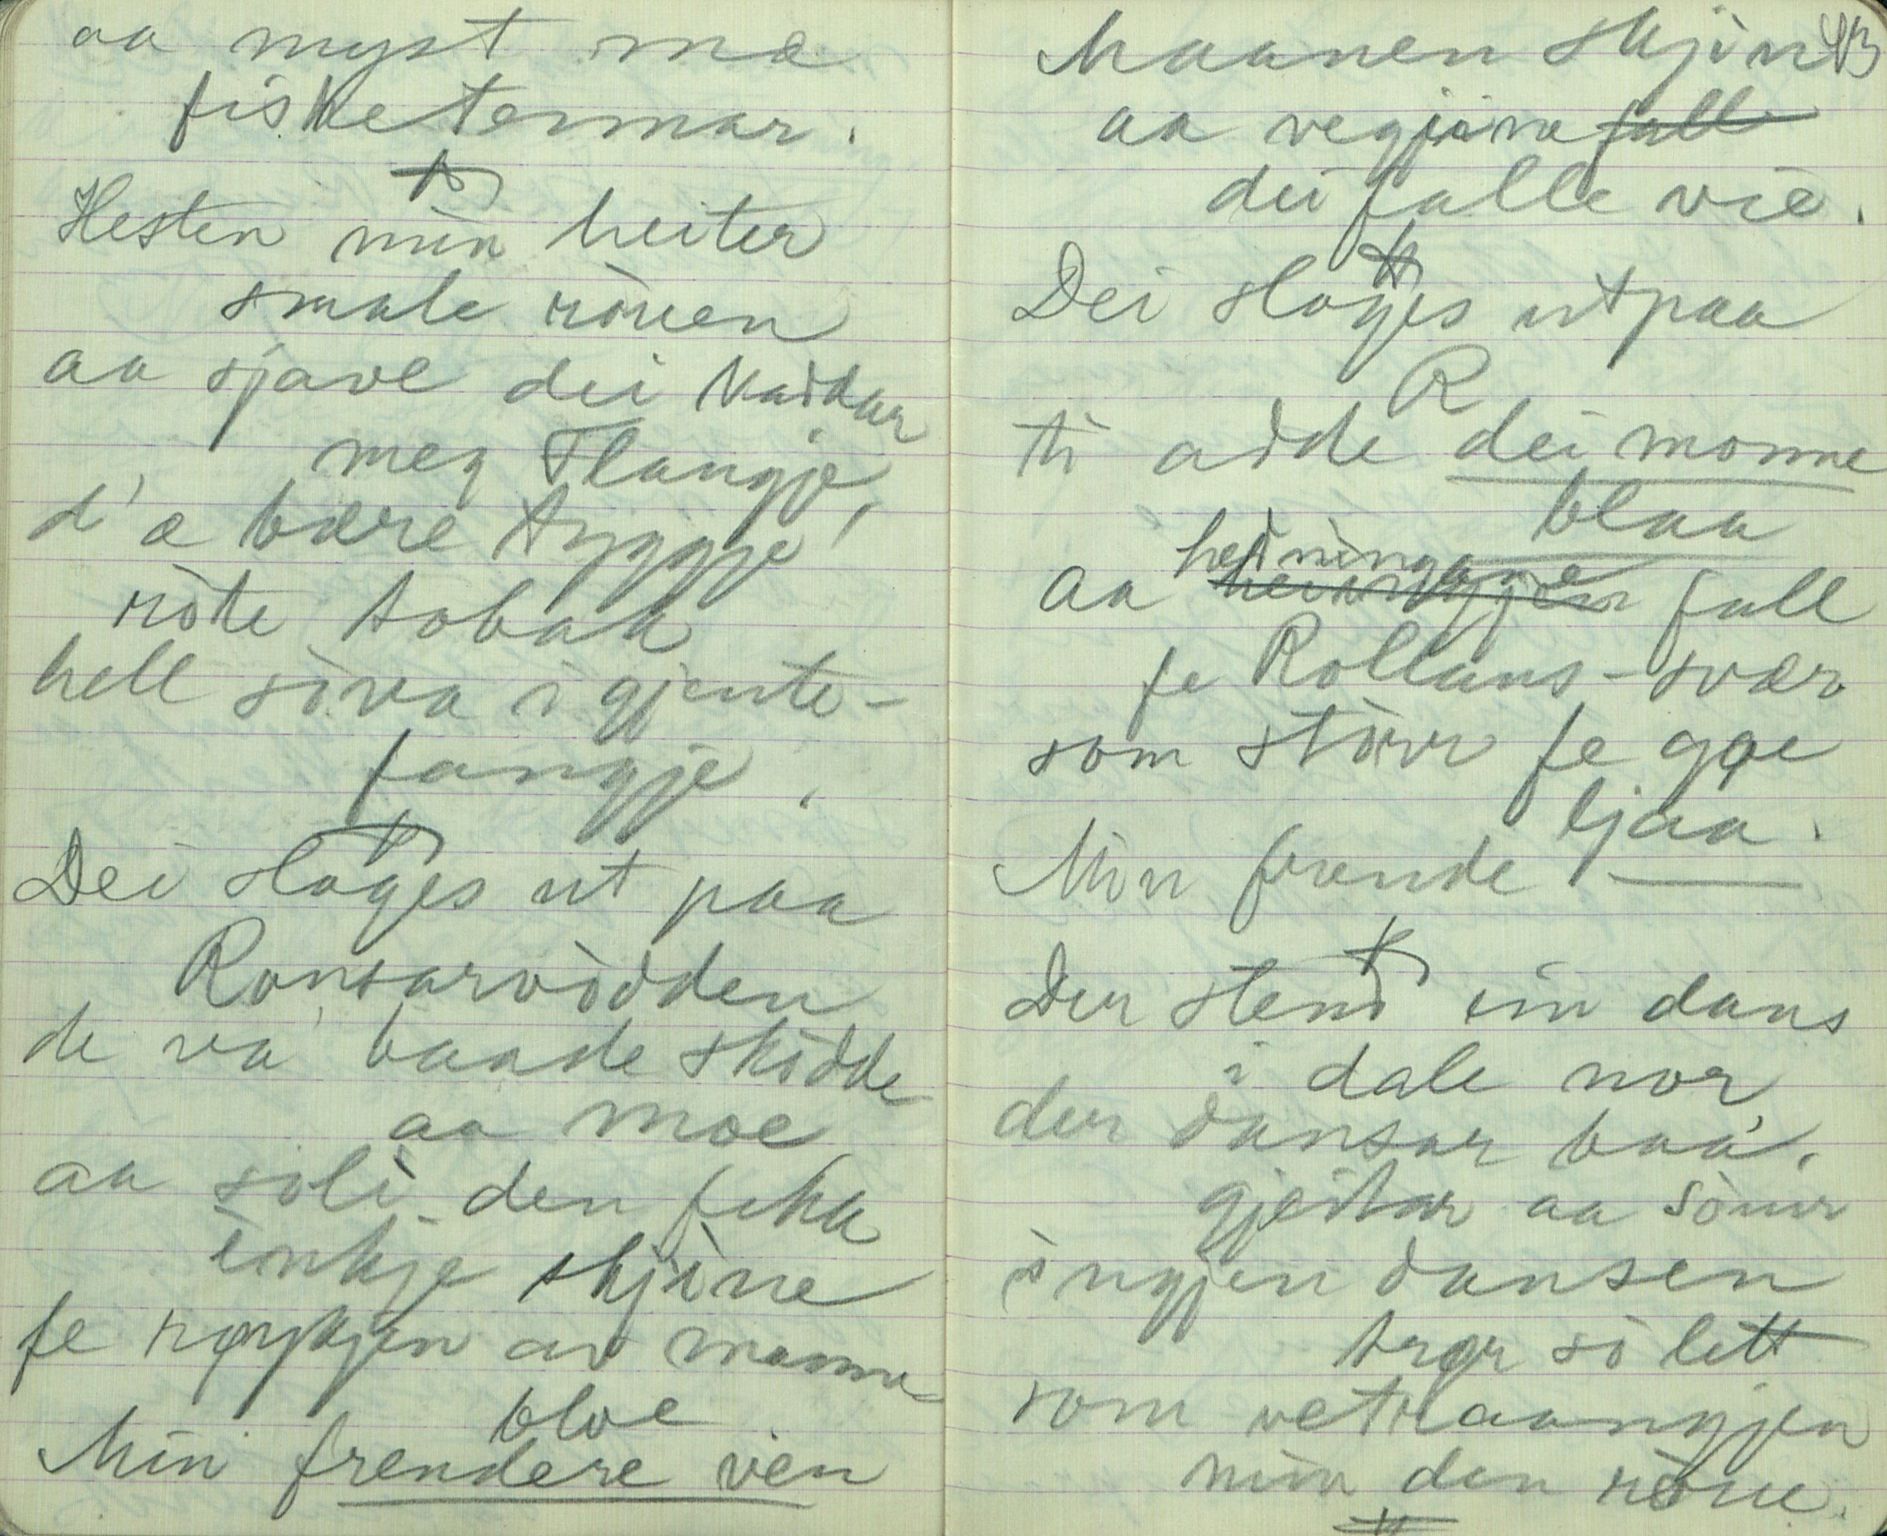 aa myst mæ
fisketennar.
Hesten min heiter
smale röuen
aa sjave dei kaddar
meg Flangje,
d'æ bære tyggje
röte tobak
hell söva i gjente-
fangje.
Dei sloges ut paa
Ronsarvödden
de va' baade skodde
aa moe
aa soli den fekk
inkje skjine
fe røykjen av manne
bloe
Min frendere vien
Maanen skjin 43
aa vegjine fall
dei falle vie.
Dei sloges utpaa
R
ti adde dei monne
blaa
aa heiningane fall
fe Rollans-svær
som störr fe goe
ljaa.
Min frende —
Der stend ein dans
i dale nor,
der dansar baa'
gjeitar aa söuir
ingjen dansen
trør so lett
som vetraangjen
min den röue.